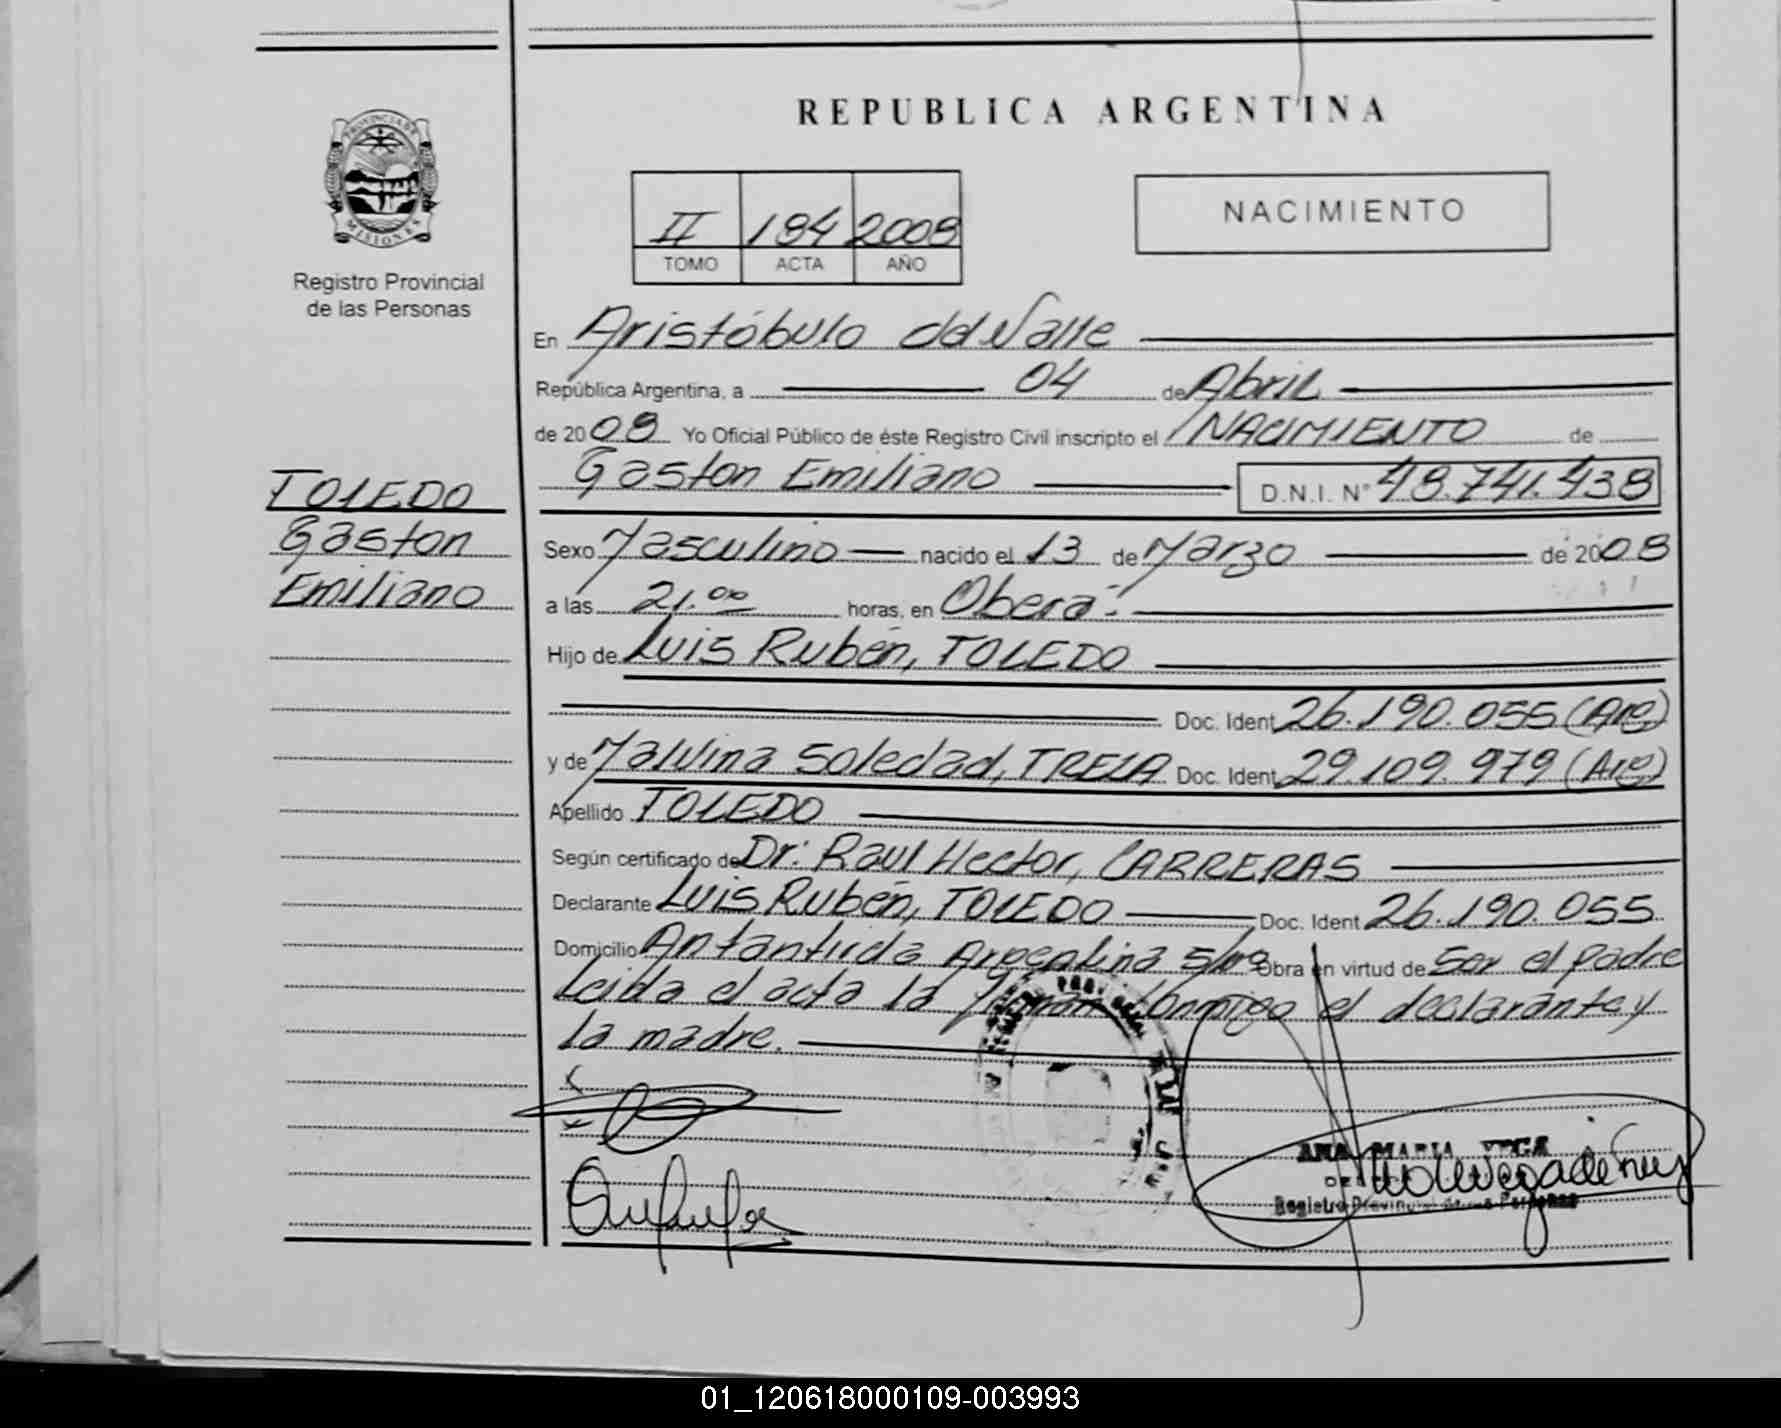 REPUBLICA ARGENTINA
PROVINCIA DE
MISIONES
Registro Provincial
de las Personas
II 184 2008
TOMO ACTA AÑO
NACIMIENTO
En Aristóbulo del Valle
República Argentina, a 04 de Abril
de 2008 Yo Oficial Público de éste Registro Civil inscripto el NACIMIENTO de
Gaston Emiliano D.N.I. Nº 48.741.438
TOLEDO
Gaston
Emiliano
Sexo Masculino nacido el 13 de Marzo de 2008
a las 21.00 horas, en Oberá.
Hijo de Luis Rubén, TOLEDO
Doc. Ident. 26.190.055 (Arg)
y de Malvina Soledad, TRELA Doc. Ident. 29.109.979 (Arg)
Apellido TOLEDO
Según certificado de Dr: Raul Hector, CARRERAS
Declarante Luis Rubén, TOLEDO Doc. Ident. 26.190.055
Domicilio Argentina Obra en virtud de Ser el padre
Leida el acta la firman Conmigo el declarante y
la madre.
ANA MARIA VEGA
Registro Provincial de las Personas
01_120618000109-003993